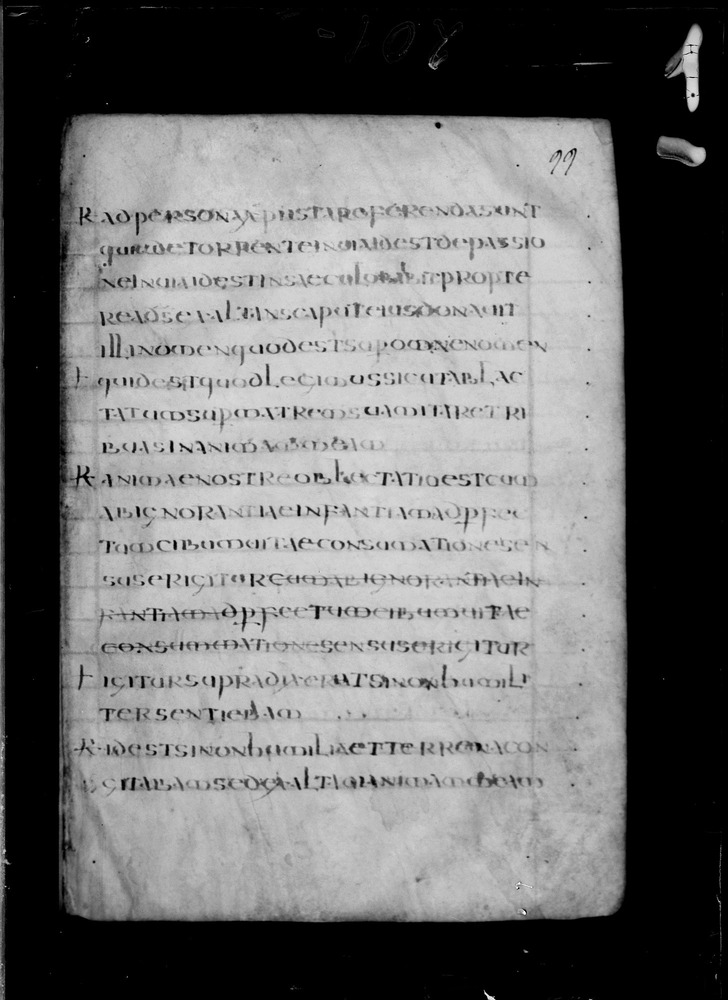 99
R AD PERSONA XPI ISTA REFERENDA SUNT
QUIA DE TORRENTE IN UIA ID EST DE PASSIO
NE IN UIA ID EST IN SAECULO BIBIT PROPTE
REA DS EXALTANS CAPUT EIUS DONAUIT
ILLI NOMEN QUOD EST SUP OMNE NOMEN
QUID EST QUOD LEGIMUS SICUT ABLAC
TATUM SUP MATREM SUAM ITA RETRI
BUAS IN ANIMA MEAM
R ANIMAE NOSTRE OBLECTATIO EST CUM
AB IGNORANTIAE INFANTIAM AD PFEC
TUM CIBUM UITAE CONSUMATIONE SEN
SUS ERIGITUR CUM AB IGNORANTIAE IN
FANTIAM AD PFECTUM CIBUM UITAE
CONSUMMATIONE SENSUS ERIGITUR
IGITUR SUPRA DIXERAT SI NON HUMILI
TER SENTIEBAM
R ID EST SI NON HUMILIA ET TERRENA CO
GITABAM SED EXALTAUI ANIMAM MEAM